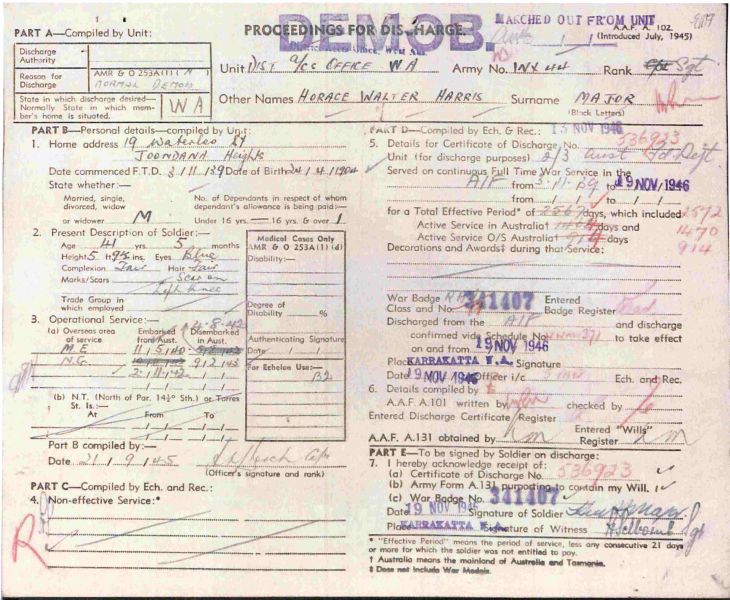 MARCHED OUT FROM UNIT
PROCEEDINGS FOR DISCHARGE.
DEMOB.
A.A.F. A. 102.
(Introduced July, 1945)
PART A—Compiled by Unit:
Discharge Authority
Reason for Discharge
AMR & O 253A(1)( )
NORMAL DEMOB
State in which discharge desired—
Normally State in which mem-
ber's home is situated.
WA
Unit DIST A/CS OFFICE WA Army No. WX 44 Rank Sgt
Other Names HORACE WALTER HARRIS Surname MAJOR
(Block Letters)
PART B—Personal details—compiled by Unit:
1. Home address 19 Waterloo St
JOONDANA Heights
Date commenced F.T.D. 3/11/39 Date of Birth 24/4/1904
State whether:—
Married, single,
divorced, widow
or widower M
No. of Dependants in respect of whom
dependant's allowance is being paid:—
Under 16 yrs. — 16 yrs. & over 1
2. Present Description of Soldier:—
Age 41 yrs. 5 months
Height 5 ft 9½ ins. Eyes Blue
Complexion Fair Hair Fair
Marks/Scars Scar on
Left knee
Trade Group in
which employed
Medical Cases Only
AMR & O 253A(1)(d)
Disability:—
Degree of
Disability %
Authenticating Signature
Date / /
For Echelon Use:—
B2
3. Operational Service:—
(a) Overseas area
of service
Embarked
from Aust.
Disembarked
in Aust.
4-8-42
M.E. 11/5/40
N.G. 9/2/43
2/11/42
(b) N.T. (North of Par. 14½° Sth.) or Torres
St. Is.:—
At From To
Part B compiled by:—
Date 21/9/45
(Officer's signature and rank)
PART C—Compiled by Ech. and Rec.:
4. Non-effective Service:*
R
PART D—Compiled by Ech. & Rec.: 13 NOV 1946
5. Details for Certificate of Discharge No. 536923
Unit (for discharge purposes) 2/3 Aust Fd Regt
Served on continuous Full Time War Service in the
AIF from 3.11.39 to 19 NOV 1946
from to
for a Total Effective Period* of 2567 days, which included 2572
Active Service in Australia† days and 1470
Active Service O/S Australia† 914 days 914
Decorations and Awards‡ during that Service:
War Badge Class and No. 341407 Entered
Badge Register
Discharged from the AIF and discharge
confirmed vide Schedule No. 371 to take effect
on and from 19 NOV 1946
Place KARRAKATTA W.A. Signature
Date 19 NOV 1946 Officer i/c Ech. and Rec.
6. Details compiled by
A.A.F. A.101 written by checked by
Entered Discharge Certificate Register
A.A.F. A.131 obtained by Entered "Wills"
Register
PART E—To be signed by Soldier on Discharge:
7. I hereby acknowledge receipt of:
(a) Certificate of Discharge No. 536923
(b) Army Form A.131 purporting to contain my Will.
(c) War Badge No. 341407
Date 19 NOV 1946 Signature of Soldier
Place KARRAKATTA W.A. Signature of Witness
* "Effective Period" means the period of service, less any consecutive 21 days
or more for which the soldier was not entitled to pay.
† Australia means the mainland of Australia and Tasmania.
‡ Does not Include War Medals.